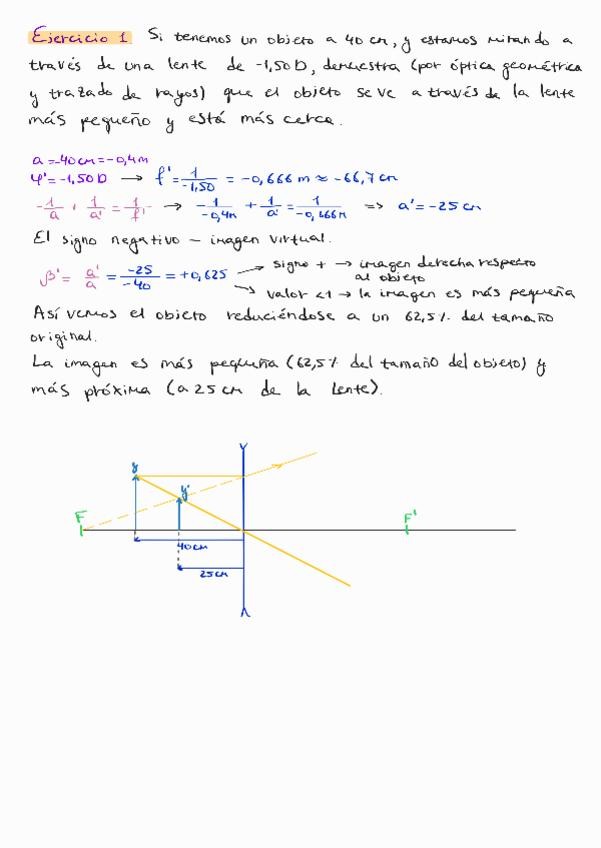 Ejercicio 1 Si tenemos un objeto a 40 cm, y estamos mirando a
través de una lente de -1,50 D, demuestra (por óptica geométrica
y trazado de rayos) que el objeto se ve a través de la lente
más pequeño y está más cerca.
a = -40 cm = -0,4 m
φ' = -1,50 D → f' = 1/-1,50 = -0,666 m ≈ -66,7 cm
-1/a + 1/a' = 1/f' → -1/-0,4m + 1/a' = 1/-0,666m => a' = -25 cm
El signo negativo – imagen virtual.
β' = a'/a = -25/-40 = +0,625 → signo + → imagen derecha respecto
al objeto
→ valor <1 → la imagen es más pequeña
Así vemos el objeto reduciéndose a un 62,5% del tamaño
original.
La imagen es más pequeña (62,5% del tamaño del objeto) y
más próxima (a 25 cm de la lente).
y
y'
F
F'
40 cm
25 cm